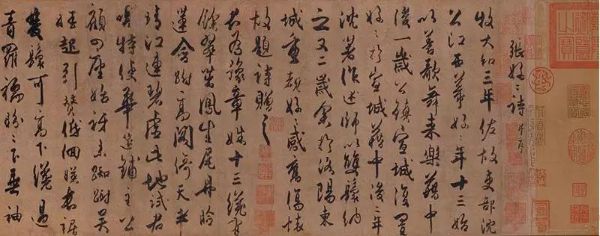 張好好詩 并序
牧大和三年佐故吏部沈
公江西幕好好年十三始
以善歌舞來樂籍中
後一歲公鎮宣城復置
好好於宣城籍中後二年
沈著作述師以雙鬟納
之又二歲余於洛陽東
城重覩好好感舊傷懷
故題詩贈之
君為豫章姝十三纔有
餘翠茁鳳生尾丹臉
蓮含跗高閣倚天半
晴江連碧虛此地試君
唱特使華筵鋪主公
顧四座始訝來踟躕吳
娃起引贊低佪映長裾
雙鬟可高下纔過
青羅襦盼盼下垂袖